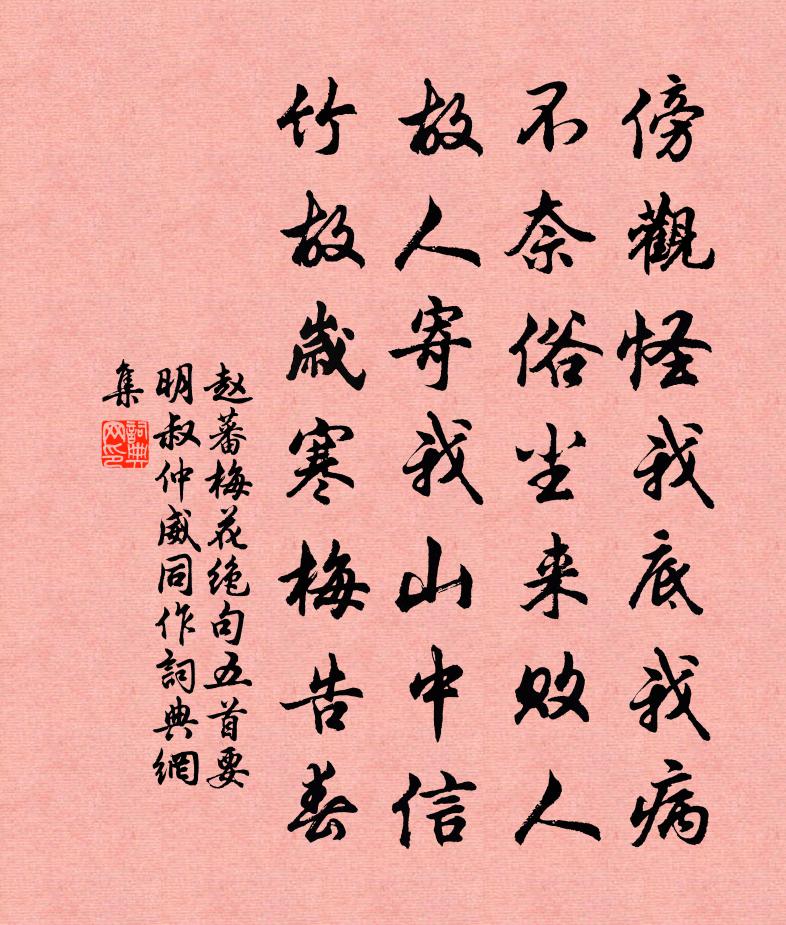 傍觀怪我底我病
不奈俗尘来败人
故人寄我山中信
竹故歲寒梅告春
赵蕃梅花绝句五首要
明叔仲威同作詞典網
集
詞典
网印